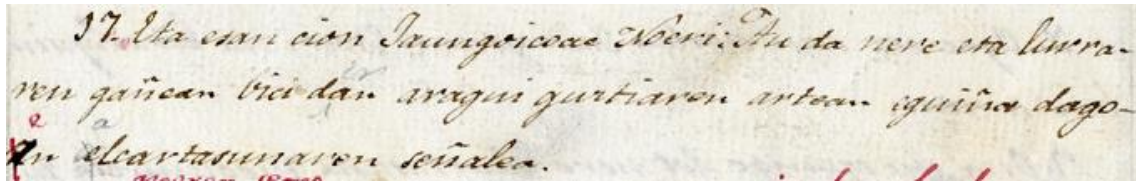 17. Eta esan cion Jaungoiceac Noeri: Au da nere eta lurra-
ren gañean bici dan aragui guztiaren artean eguiña dago-
en elcartasunaren señalea.